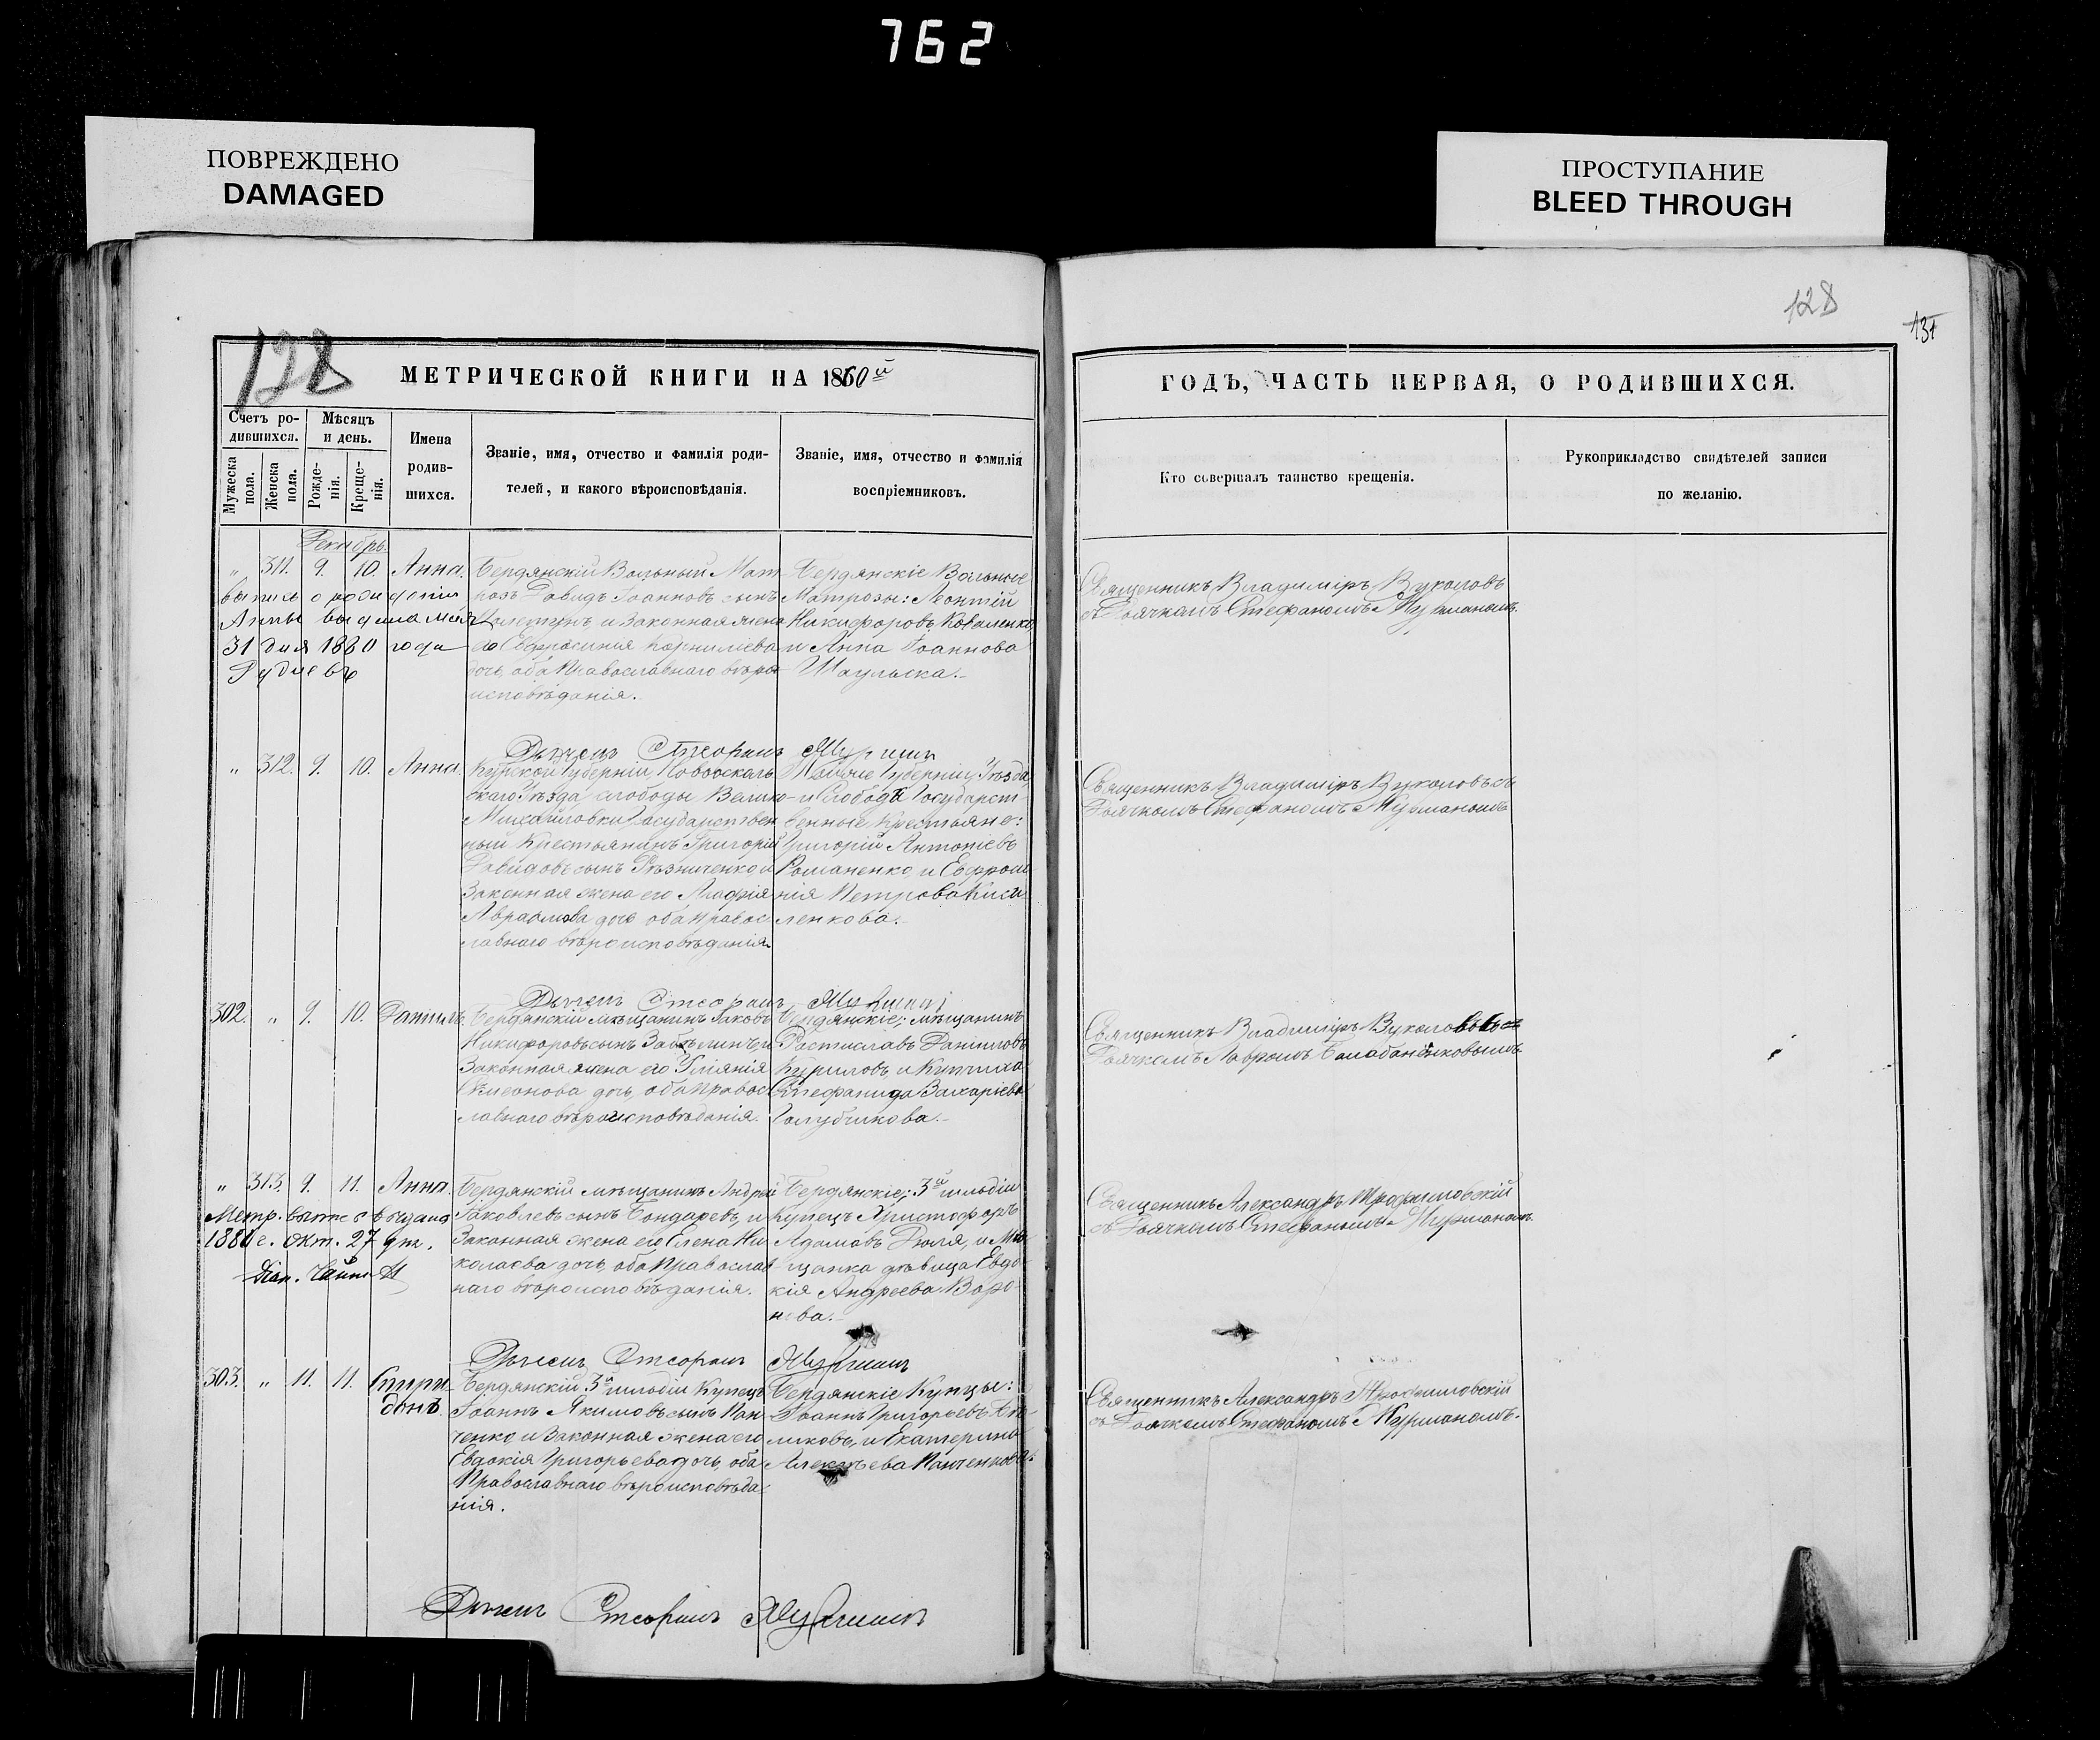 762
ПОВРЕЖДЕНО
DAMAGED
ПРОСТУПАНИЕ
BLEED THROUGH
128
128
131
МЕТРИЧЕСКОЙ КНИГИ НА 1860й
ГОДЪ, ЧАСТЬ ПЕРВАЯ, О РОДИВШИХСЯ.
Счетъ ро-
дившихся.
Мужеска
пола.
Женска
пола.
Мѣсяцъ
и день.
Рожде-
нія.
Креще-
нія.
Имена
родив-
шихся.
Званіе, имя, отчество и фамилія роди-
телей, и какого вѣроисповѣданія.
Званіе, имя, отчество и фамилія
воспріемниковъ.
Кто совершалъ таинство крещенія.
Рукоприкладство свидѣтелей записи
по желанію.
Декабрь.
„ 311. 9. 10. Анна.
Анны выдана мая
31 дня 1880 года
Бердянскій Вольный Мат-
росъ Давидъ Іоанновъ сынъ
и законная жена
его Евфросинія Корниліева
дочь, оба Православнаго вѣро-
исповѣданія.
Бердянскіе Вольные
Матросы: Леонтій
Никифоровъ Коваленко,
и Анна Іоаннова
Священникъ Владиміръ Вуколовъ
съ Дьячкомъ Стефаномъ Мурманомъ.
„ 312. 9. 10. Анна.
Дьячекъ Стефанъ Мурманъ
Курской Губерніи, Новооскол-
скаго Уѣзда слободы Велико-
Михайловки Государствен-
ный Крестьянинъ Григорій
Давидовъ сынъ Рѣзниченко и
Законная жена его Агафія
Авраамова дочь, оба Правос-
лавнаго вѣроисповѣданія.
Той же Губерніи, Уѣзда
и Слободы Государст-
венные Крестьяне:
Григорій Антоніевъ
Романенко, и Евфроси-
нія Петрова Киси-
ленкова.
Священникъ Владиміръ Вуколовъ съ
Дьячкомъ Стефаномъ Мурманомъ
302. „ 9. 10. Даніилъ.
Дьячекъ Стефанъ Мурманъ
Бердянскій мѣщанинъ Іаковъ
Никифоровъ сынъ Забѣлинъ, и
Законная жена его Уліянія
Симеонова дочь, оба Правос-
лавнаго вѣроисповѣданія.
Бердянскіе; мѣщанинъ
Ростиславъ Даніиловъ
Куриловъ, и Купчиха
Стефанида Захаріева
Голубчикова.
Священникъ Владиміръ Вуколовъ съ
Дьячкомъ Лавромъ Балабаненковымъ.
„ 313. 9. 11. Анна.
1880 г. Окт. 27 дня.
Бердянскій мѣщанинъ Андрей
Іаковлевъ сынъ Бондаревъ, и
Законная жена его Елена Ни-
колаева дочь, оба Православ-
наго вѣроисповѣданія.
Бердянскіе; 3й гильдіи
купецъ Христофоръ
Адамовъ Дюля, и Мѣ-
щанка дѣвица Евдо-
кія Андреева Воро-
нова.
Священникъ Александръ Трофимовскій
съ Дьячкомъ Стефаномъ Мурманомъ.
303. „ 11. 11. Спири-
донъ.
Дьячекъ Стефанъ Мурманъ
Бердянскій 3й гильдіи Купецъ
Іоаннъ Якимовъ сынъ Пан-
ченко, и Законная жена его
Евдокія Григорьева дочь, оба
Православнаго вѣроисповѣда-
нія.
Бердянскіе Купцы:
Іоаннъ Григорьевъ
и Екатерина
Алексѣева Панченкова.
Священникъ Александръ Трофимовскій
съ Дьячкомъ Стефаномъ Мурманомъ.
Дьячекъ Стефанъ Мурманъ